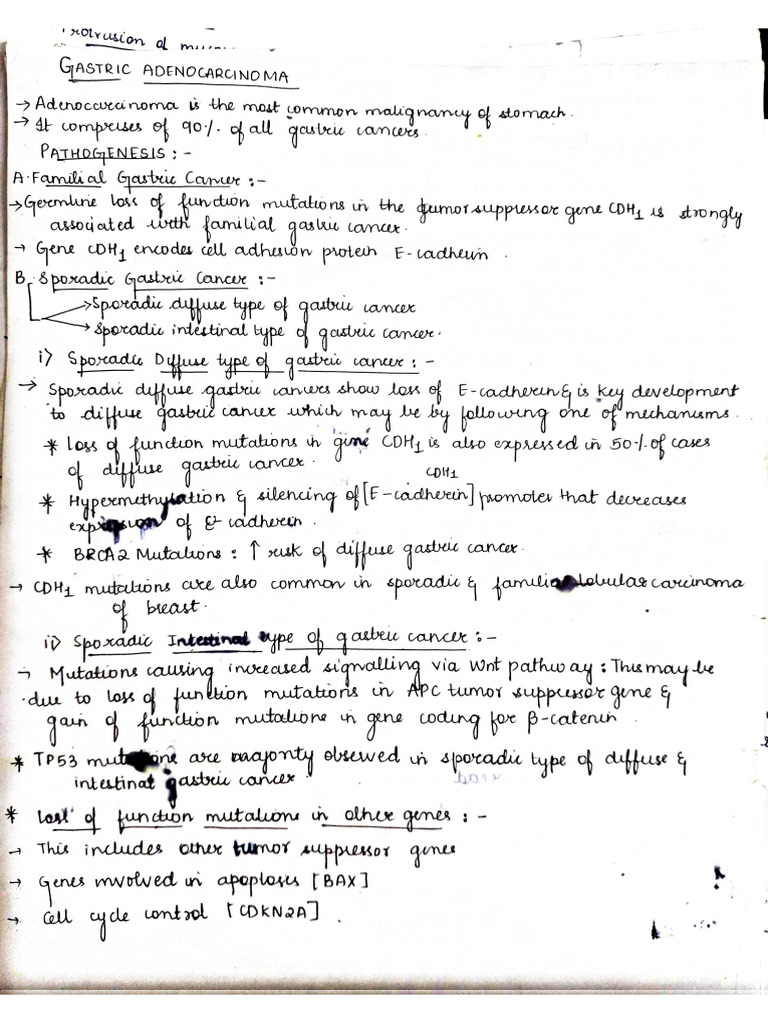 Protrusion of
GASTRIC ADENOCARCINOMA
→ Adenocarcinoma is the most common malignancy of stomach.
→ It comprises of 90% of all gastric cancers.
PATHOGENESIS :-
A. Familial Gastric Cancer :-
→ Germline loss of function mutations in the tumor suppressor gene CDH1 is strongly
associated with familial gastric cancer.
→ Gene CDH1 encodes cell adhesion protein E-cadherin.
B. Sporadic Gastric Cancer :-
→ Sporadic diffuse type of gastric cancer
→ Sporadic intestinal type of gastric cancer.
i) Sporadic Diffuse type of gastric cancer :-
→ Sporadic diffuse gastric cancers show loss of E-cadherin & is key development
to diffuse gastric cancer which may be by following one of mechanisms.
* Loss of function mutations in gene CDH1 is also expressed in 50% of cases
of diffuse gastric cancer.
CDH1
* Hypermethylation & silencing of [E-cadherin] promoter that decreases
expression of E-cadherin.
* BRCA2 Mutations : ↑ risk of diffuse gastric cancer.
→ CDH1 mutations are also common in sporadic & familial lobular carcinoma
of breast.
ii) Sporadic Intestinal type of gastric cancer :-
→ Mutations causing increased signalling via Wnt pathway : This may be
due to loss of function mutations in APC tumor suppressor gene &
gain of function mutations in gene coding for β-catenin
* TP53 mutations are majority observed in sporadic type of diffuse &
intestinal gastric cancer
* Loss of function mutations in other genes :-
→ This includes other tumor suppressor genes
→ Genes involved in apoptosis [BAX]
→ Cell cycle control [CDKN2A].